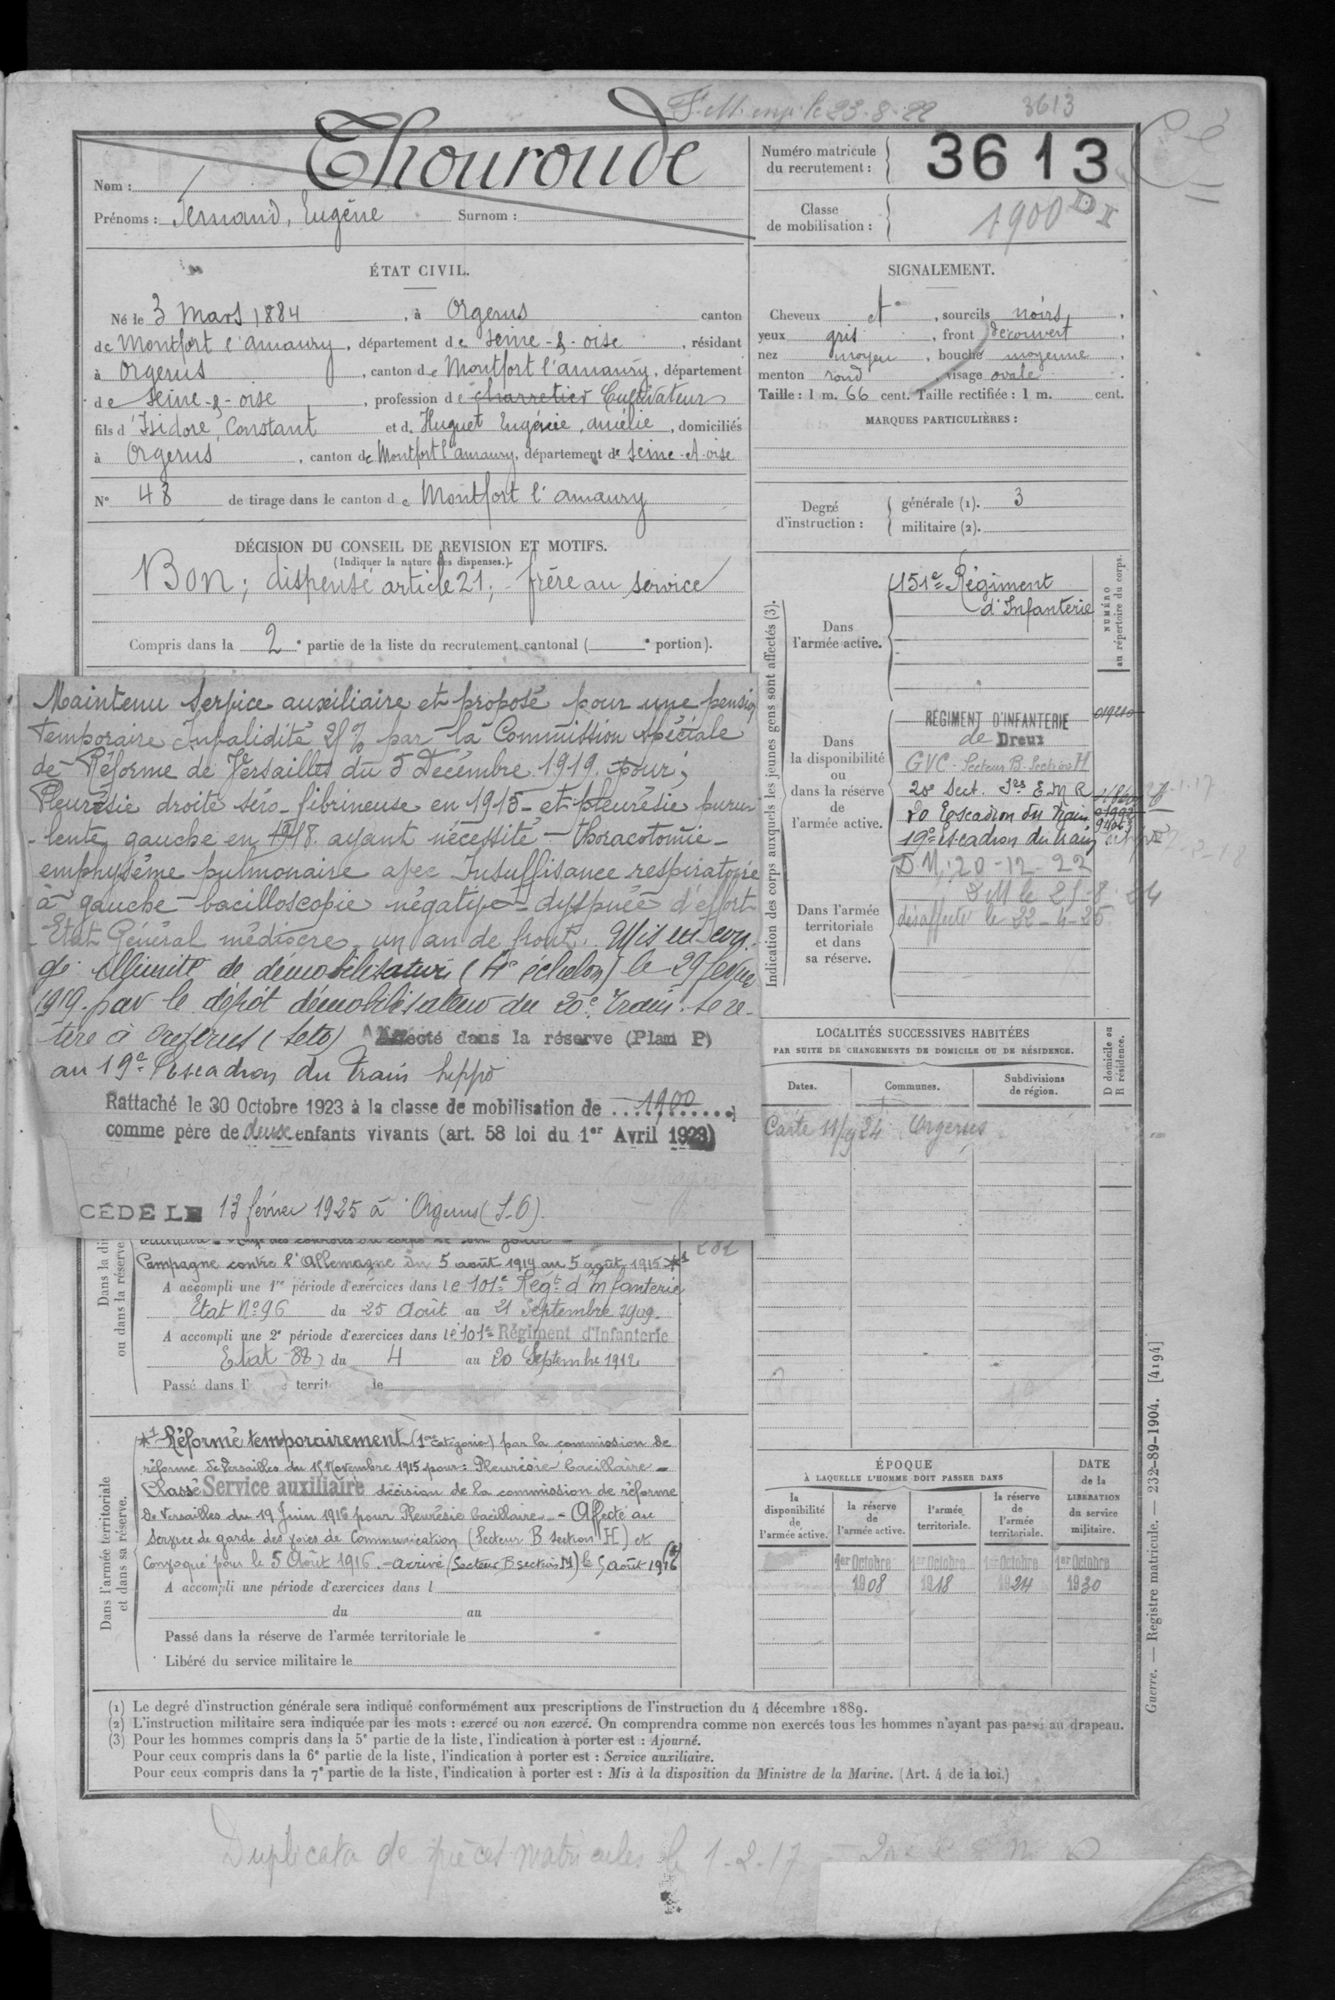 3613
Thouroude
Nom :
Prénoms : Fernand, Eugène Surnom :
Numéro matricule du recrutement : 3613
Classe de mobilisation : 1900
ÉTAT CIVIL.
Né le 3 Mars 1884, à Orgerus canton
de Montfort l'amaury, département de Seine-&-oise, résidant
à Orgerus, canton de Montfort l'amaury, département
de Seine-&-oise, profession de charretier Cultivateur
fils d'Isidore, Constant et d. Huguet Eugénie, amélie, domiciliés
à Orgerus, canton de Montfort l'amaury, département de Seine-et-oise
N° 48 de tirage dans le canton de Montfort l'amaury
SIGNALEMENT.
Cheveux et, sourcils noirs,
yeux gris, front découvert,
nez moyen, bouche moyenne,
menton rond, visage ovale.
Taille : 1 m. 66 cent. Taille rectifiée : 1 m. cent.
MARQUES PARTICULIÈRES :
Degré d'instruction : générale (1). 3
militaire (2).
DÉCISION DU CONSEIL DE REVISION ET MOTIFS.
(Indiquer la nature des dispenses.)
Bon; dispensé article 21; frère au service
Compris dans la 2e partie de la liste du recrutement cantonal ( e portion).
Maintenu Service auxiliaire et proposé pour une pension
temporaire Invalidité % par la Commission spéciale
de Réforme de Versailles du 5 Décembre 1919. pour;
Pleurésie droite séro-fibrineuse en 1915 - et pleurésie puru-
lente gauche en 1918 ayant nécessité - thoracotomie -
emphysème pulmonaire avec Insuffisance respiratoire
à gauche - bacilloscopie négative - dyspnée d'effort
- Etat Général médiocre. un an de front. Mis en con-
gé illimité de démobilisation (4e échelon) le 29 février
1919. par le dépôt démobilisateur du 20e Train. se re-
tire à Orgerus (Seto) Affecté dans la réserve (Plan P)
au 19e Escadron du Train hippo
Rattaché le 30 Octobre 1923 à la classe de mobilisation de 1900
comme père de deux enfants vivants (art. 58 loi du 1er Avril 1923)
CÉDÉ LE 13 février 1925 à Orgerus (S-O).
Indication des corps auxquels les jeunes gens sont affectés (3).
NUMÉRO au répertoire du corps.
Dans l'armée active.
151e Régiment
d'Infanterie
Dans la disponibilité ou dans la réserve de l'armée active.
RÉGIMENT D'INFANTERIE
de Dreux
GVC - Secteur B - Section H
20e Sect. E M R
20 Escadron du Train
19e Escadron du train
Dans l'armée territoriale et dans sa réserve.
D M. 20-12-22
DM le 25-8-24
désaffecté le 22-4-25
LOCALITÉS SUCCESSIVES HABITÉES
PAR SUITE DE CHANGEMENTS DE DOMICILE OU DE RÉSIDENCE.
Dates. Communes. Subdivisions de région. D domicile ou R résidence.
Carte 11/9 24 Orgerus
Campagne contre l'Allemagne du 5 août 1914 au 5 août 1915 *1
A accompli une 1re période d'exercices dans le 101e Régt d'Infanterie
Etat N° 96 du 25 Août au 21 Septembre 1909.
A accompli une 2e période d'exercices dans le 101e Régiment d'Infanterie
Etat 88 du 4 au 20 Septembre 1912
Passé dans l' territ le
Dans l'armée territoriale et dans sa réserve.
*1 Réformé temporairement (1ere catégorie) par la commission de
réforme de Versailles du Novembre 1915 pour : Pleurésie bacillaire -
Classé Service auxiliaire décision de la commission de réforme
de Versailles du 19 Juin 1916 pour Pleurésie bacillaire - Affecté au
Service de garde des voies de Communication (Secteur B Section H) et
Convoqué pour le 5 Août 1916. - arrivé (Secteur B section H) le 5 août 1916
A accompli une période d'exercices dans l
du au
Passé dans la réserve de l'armée territoriale le
Libéré du service militaire le
ÉPOQUE
À LAQUELLE L'HOMME DOIT PASSER DANS
la disponibilité de l'armée active. la réserve de l'armée active. l'armée territoriale. la réserve de l'armée territoriale.
DATE de la LIBÉRATION du service militaire.
1er Octobre 1er Octobre 1er Octobre 1er Octobre
1908 1918 1924 1930
(1) Le degré d'instruction générale sera indiqué conformément aux prescriptions de l'instruction du 4 décembre 1889.
(2) L'instruction militaire sera indiquée par les mots : exercé ou non exercé. On comprendra comme non exercés tous les hommes n'ayant pas passé au drapeau.
(3) Pour les hommes compris dans la 5e partie de la liste, l'indication à porter est : Ajourné.
Pour ceux compris dans la 6e partie de la liste, l'indication à porter est : Service auxiliaire.
Pour ceux compris dans la 7e partie de la liste, l'indication à porter est : Mis à la disposition du Ministre de la Marine. (Art. 4 de la loi.)
Guerre. — Registre matricule. — 232-89-1904. [4194]
Duplicata de pièces matricules le 1-2-17